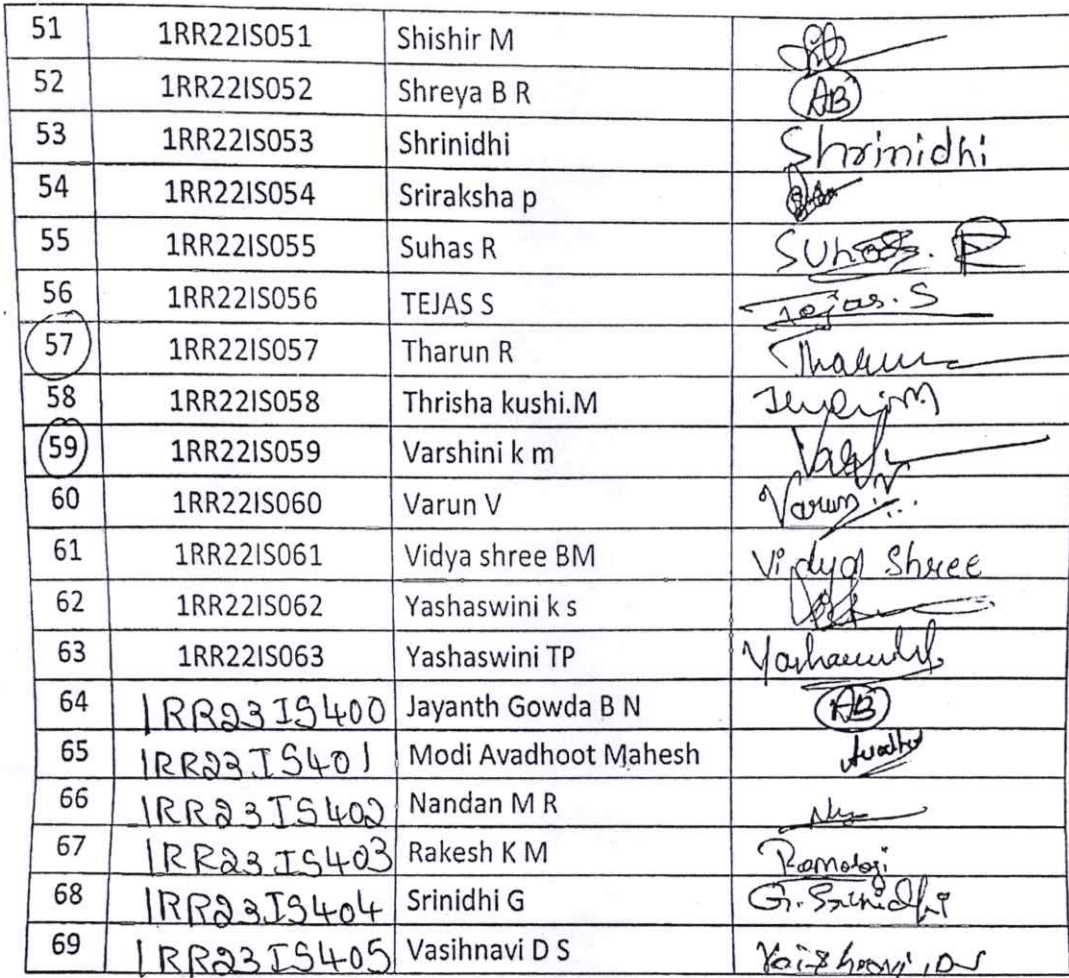 51 1RR22IS051 Shishir M
52 1RR22IS052 Shreya B R AB
53 1RR22IS053 Shrinidhi Shrinidhi
54 1RR22IS054 Sriraksha p
55 1RR22IS055 Suhas R SUhas. R
56 1RR22IS056 TEJAS S Tejas. S
57 1RR22IS057 Tharun R Tharun
58 1RR22IS058 Thrisha kushi.M
59 1RR22IS059 Varshini k m
60 1RR22IS060 Varun V Varun V
61 1RR22IS061 Vidya shree BM Vidya Shree
62 1RR22IS062 Yashaswini k s
63 1RR22IS063 Yashaswini TP
64 1RR23IS400 Jayanth Gowda B N AB
65 1RR23IS401 Modi Avadhoot Mahesh
66 1RR23IS402 Nandan M R
67 1RR23IS403 Rakesh K M
68 1RR23IS404 Srinidhi G G. Srinidhi
69 1RR23IS405 Vasihnavi D S